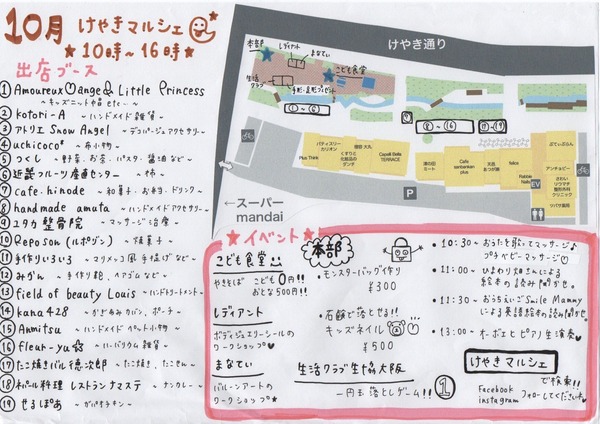 10月 けやきマルシェ
★10時〜16時★
出店ブース
① Amoureux ange & Little Princess
〜キッズニットや 等 etc..〜
② kotori-A 〜ハンドメイド雑貨〜
③ アトリエ Snow Angel 〜デコパージュアクセサリー〜
④ uchicoco² 〜布小物〜
⑤ つくし 〜野菜、お茶、パスタ、醤油など〜
⑥ 近畿フルーツ産直センター 〜柿〜
⑦ cafe・hinode 〜和菓子・お弁当・ドリンク〜
⑧ handmade amuta 〜ハンドメイドアクセサリー〜
⑨ ユタカ整骨院 〜マッサージ治療〜
⑩ Reposon(ルポゾン) 〜焼菓子〜
⑪ 手作りいろいろ 〜マリメッコ風手提げなど〜
⑫ みかん 〜手作り鞄、ヘアゴムなど〜
⑬ field of beauty Louis 〜ハンドトリートメント〜
⑭ kana428 〜かぎあみカバン、ポーチ〜
⑮ Anmitsu 〜ハンドメイドペット小物〜
⑯ fleur-yu 〜ハーバリウム雑貨〜
⑰ たこ焼きバル徳次郎 〜たこ焼き、たこせん〜
⑱ ネパール料理 レストラン ナマステ 〜ナンカレー〜
⑲ せるぽあ 〜ガパオチキン〜
けやき通り
本部
レディアント
まなてぃ
こども食堂
生活クラブ
手形・足形プレゼント
①〜⑤
⑧〜⑯
パティスリー カリオン
Plus Think
くすりと化粧品のダンチ
麺宿 大丸
Capelli Belle TERRACE
津の田ミート
Cafe sanbankan plus
天呑 あつが茶
felice
Rabbie Nails
EV
ぶてぃぷらん
アンチョビー
さわい リウマチ 整形外科 内科
ツバサ薬局
P
←スーパー
mandai
★イベント★
こども食堂
やきそば こども0円!!
おとな500円!!
レディアント
ボディジュエリーシールの
ワークショップ♥
まなてぃ
バルーンアートの
ワークショップ★
本部
・モンスターバッグ作り
¥300
・石鹸で落とせる!!
キッズネイル
¥500
生活クラブ生協大阪
一円玉落としゲーム!!
・10:30〜 おうたを歌ってマッサージ♪
プチベビーマッサージ
・11:00〜 ひまわり畑さんによる
絵本の読み聞かせ。
・11:30〜 おうちえいごSmile Mammy
による英語絵本の読み聞かせ。
・13:00〜 オーボエとピアノ生演奏♥
けやきマルシェ
で検索!!
①
Facebook
instagram
フォローしてください